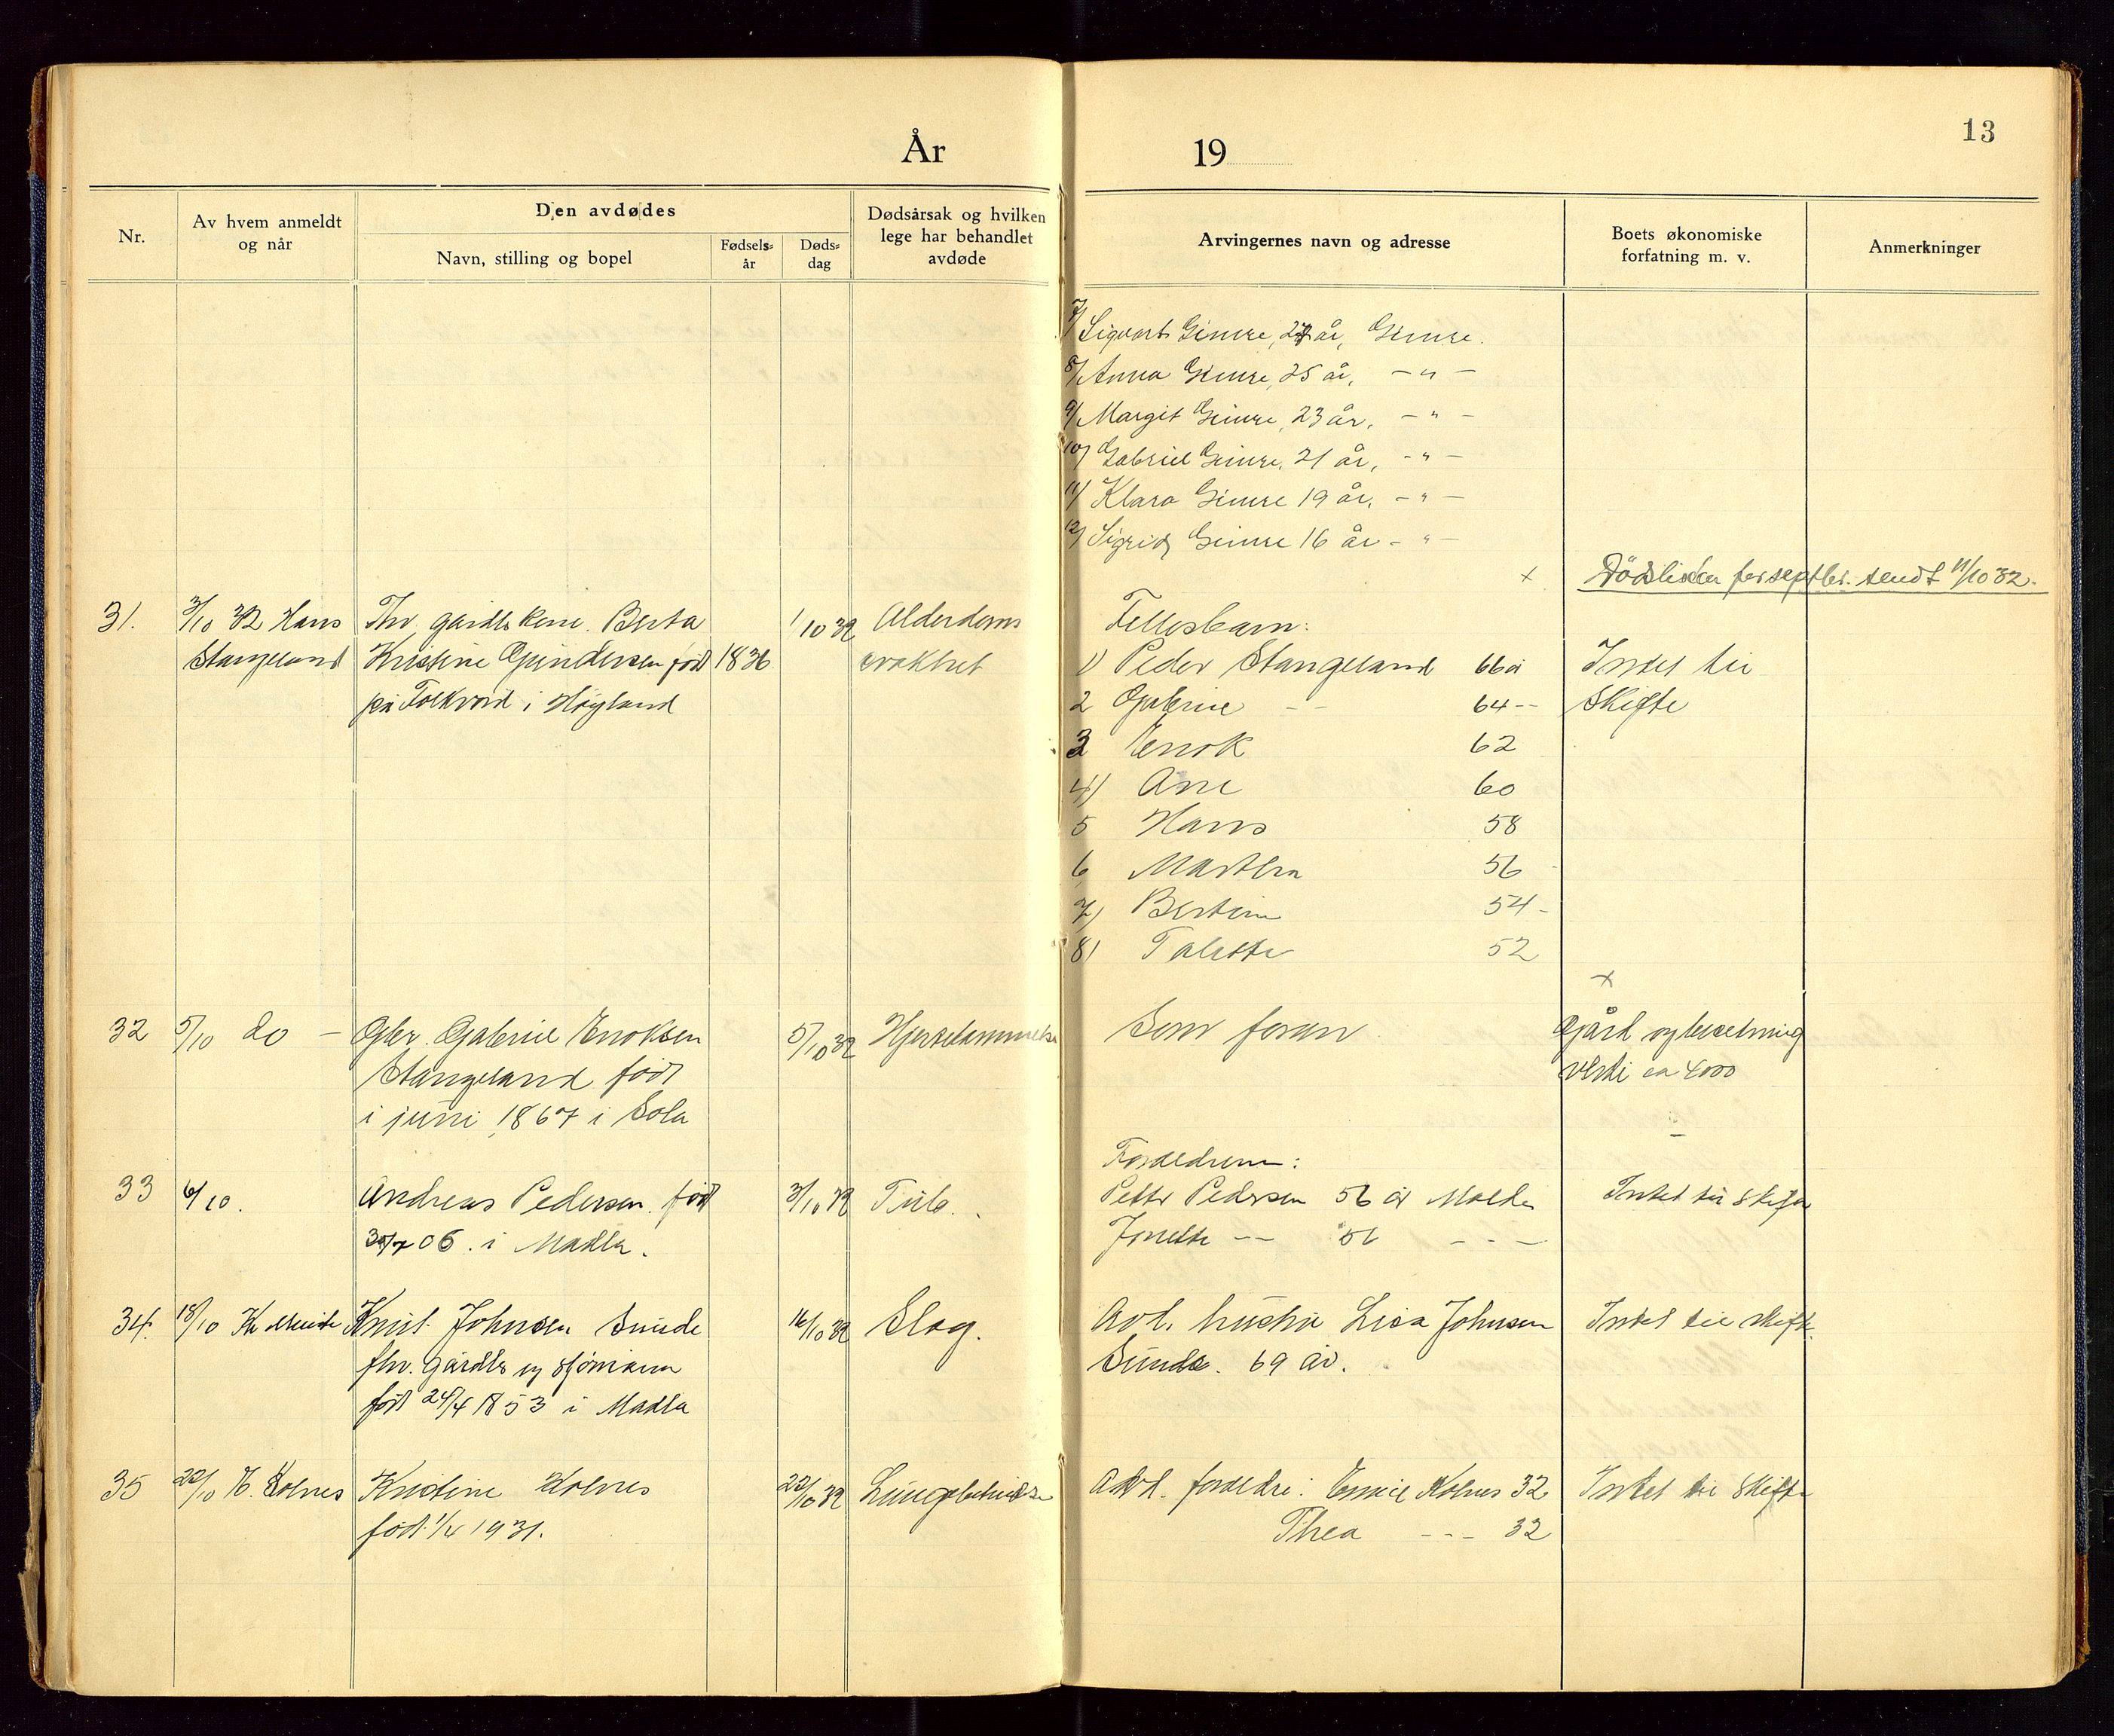 År
19
13
Nr.
Av hvem anmeldt
og når
Den avdødes
Navn, stilling og bopel
Fødsels-
år
Døds-
dag
Dødsårsak og hvilken
lege har behandlet
avdøde
Arvingernes navn og adresse
Boets økonomiske
forfatning m. v.
Anmerkninger
7/ Sigvart Gimre, 27 år, Gimre.
8/ Anna Gimre, 25 år, — " —
9/ Margit Gimre, 23 år, — " —
10/ Gabriel Gimre, 21 år, - " —
11/ Klara Gimre 19 år, - " —
12/ Sigrid Gimre 16 år - " —
x Dødslisten for septbr. sendt 11/10 32.
31. 3/10 32 Hans Fhv. gårdbr.kone Berta 1/10 32 Alderdoms Fellesbarn:
Stangeland Kristine født 1836 svakhet 1) Peder Stangeland 66 år Intet til
på Folkvord i Høyland 2 Gabriel - - 64 -- Skifte
3 Enok 62
4) Ane 60
5 Hans 58
6 Martha 56
7) Bertine 54 -
8) Talette 52
x
32 5/10 do — Gbr. Gabriel Enoksen 5/10 32 Hjertelammelse Som foran Gård og besetning
Stangeland født verdi ca 4000
i juni 1867 i Sola
Foreldrene:
33 6/10. Andreas Pedersen. født 3/10 32 Tub. Petter Pedersen 56 år Madla Intet til skifte
30/7 06. i Madla. Jonette -- 56 - - -
34. 18/10 Knut Johnsen Sunde 16/10 32 Slag. Avl. hustru Lisa Johnsen Intet til skifte
fhv. gårdbr og sjømann Sunde. 69 år.
født 24/4 1853 i Madla
35 22/10 Kolnes Kristine Kolnes 22/10 32 Lungebetendelse Avd. foreldre: Emil Kolnes 32 Intet til skifte
født 1/4 1931. Thea - - - 32